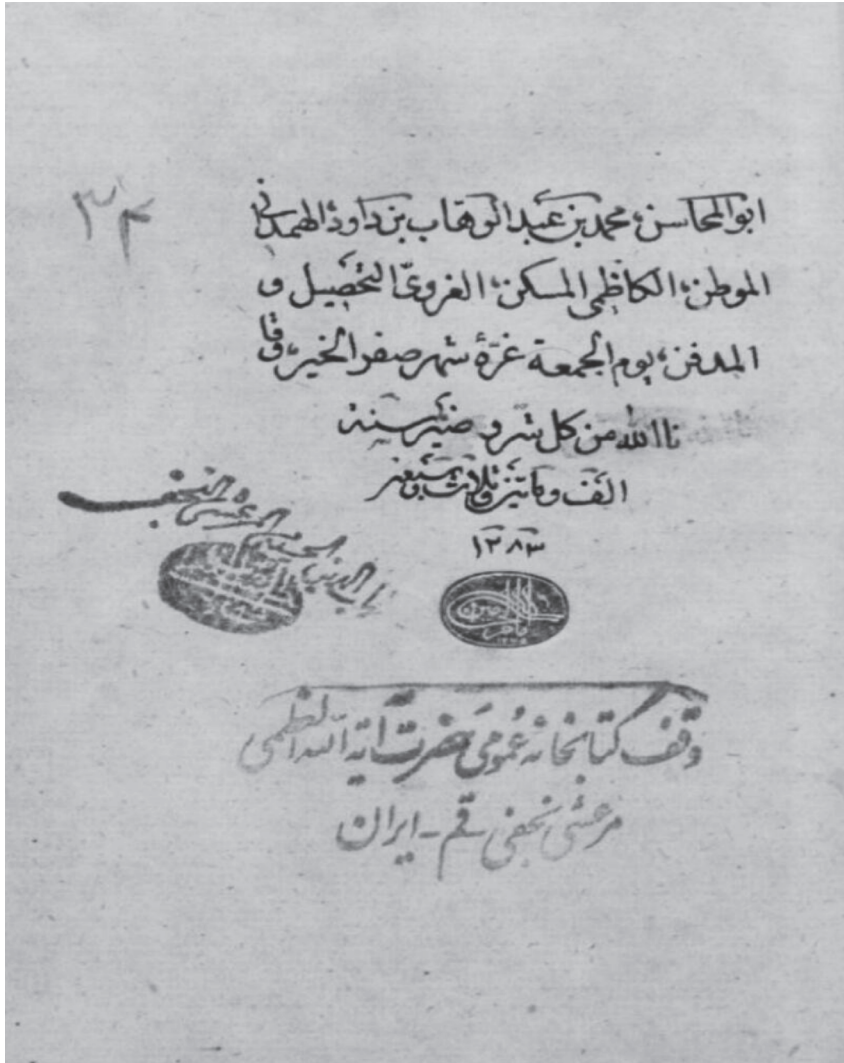 ابوالمحاسن، محمد بن عبدالوهاب بن داود الهمدانی
الموطن، الکاظمی المسکن، الغرویّ التحصیل و
المدفن، یوم الجمعة غرّة شهر صفر الخیر، وقا
نا الله من کل شر و ضیر سنه
الف و ماتین و ثلاث
۱۲۸۳
۳۴
شهاب الدین الحسینی المرعشی النجفی
وقف کتابخانه عمومی حضرت آیة الله العظمی
مرعشی نجفی قم - ایران